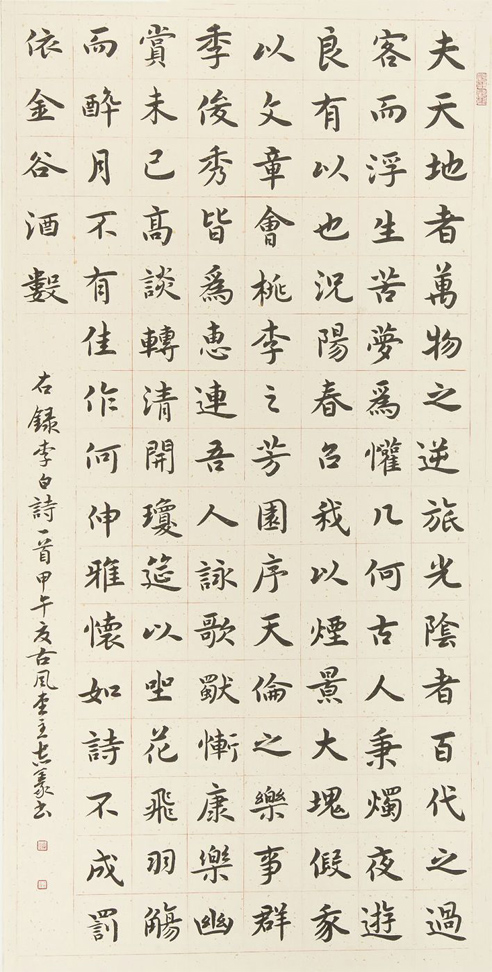 夫天地者萬物之逆旅光陰者百代之過
客而浮生苦夢爲懽几何古人秉燭夜遊
良有以也況陽春召我以煙景大塊假我
以文章會桃李之芳園序天倫之樂事群
季俊秀皆爲惠連吾人詠歌獸慚康樂幽
賞未已高談轉清開瓊筵以坐花飛羽觴
而醉月不有佳作何伸雅懷如詩不成罰
依金谷酒數
右録李白詩一首甲午夏古風堂主志義書